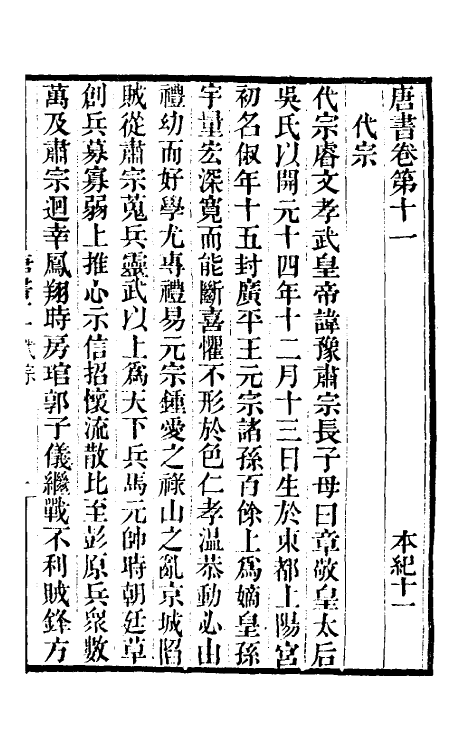 唐書卷第十一　本紀十一
代宗
代宗睿文孝武皇帝諱豫肅宗長子母曰章敬皇太后
吳氏以開元十四年十二月十三日生於東都上陽宮
初名俶年十五封廣平王元宗諸孫百餘上爲嫡皇孫
宇量宏深寬而能斷喜懼不形於色仁孝温恭動必由
禮幼而好學尤專禮易元宗鍾愛之祿山之亂京城陷
賊從肅宗蒐兵靈武以上爲天下兵馬元帥時朝廷草
創兵募寡弱上推心示信招懷流散比至彭原兵衆數
萬及肅宗迴幸鳳翔時房琯郭子儀繼戰不利賊鋒方